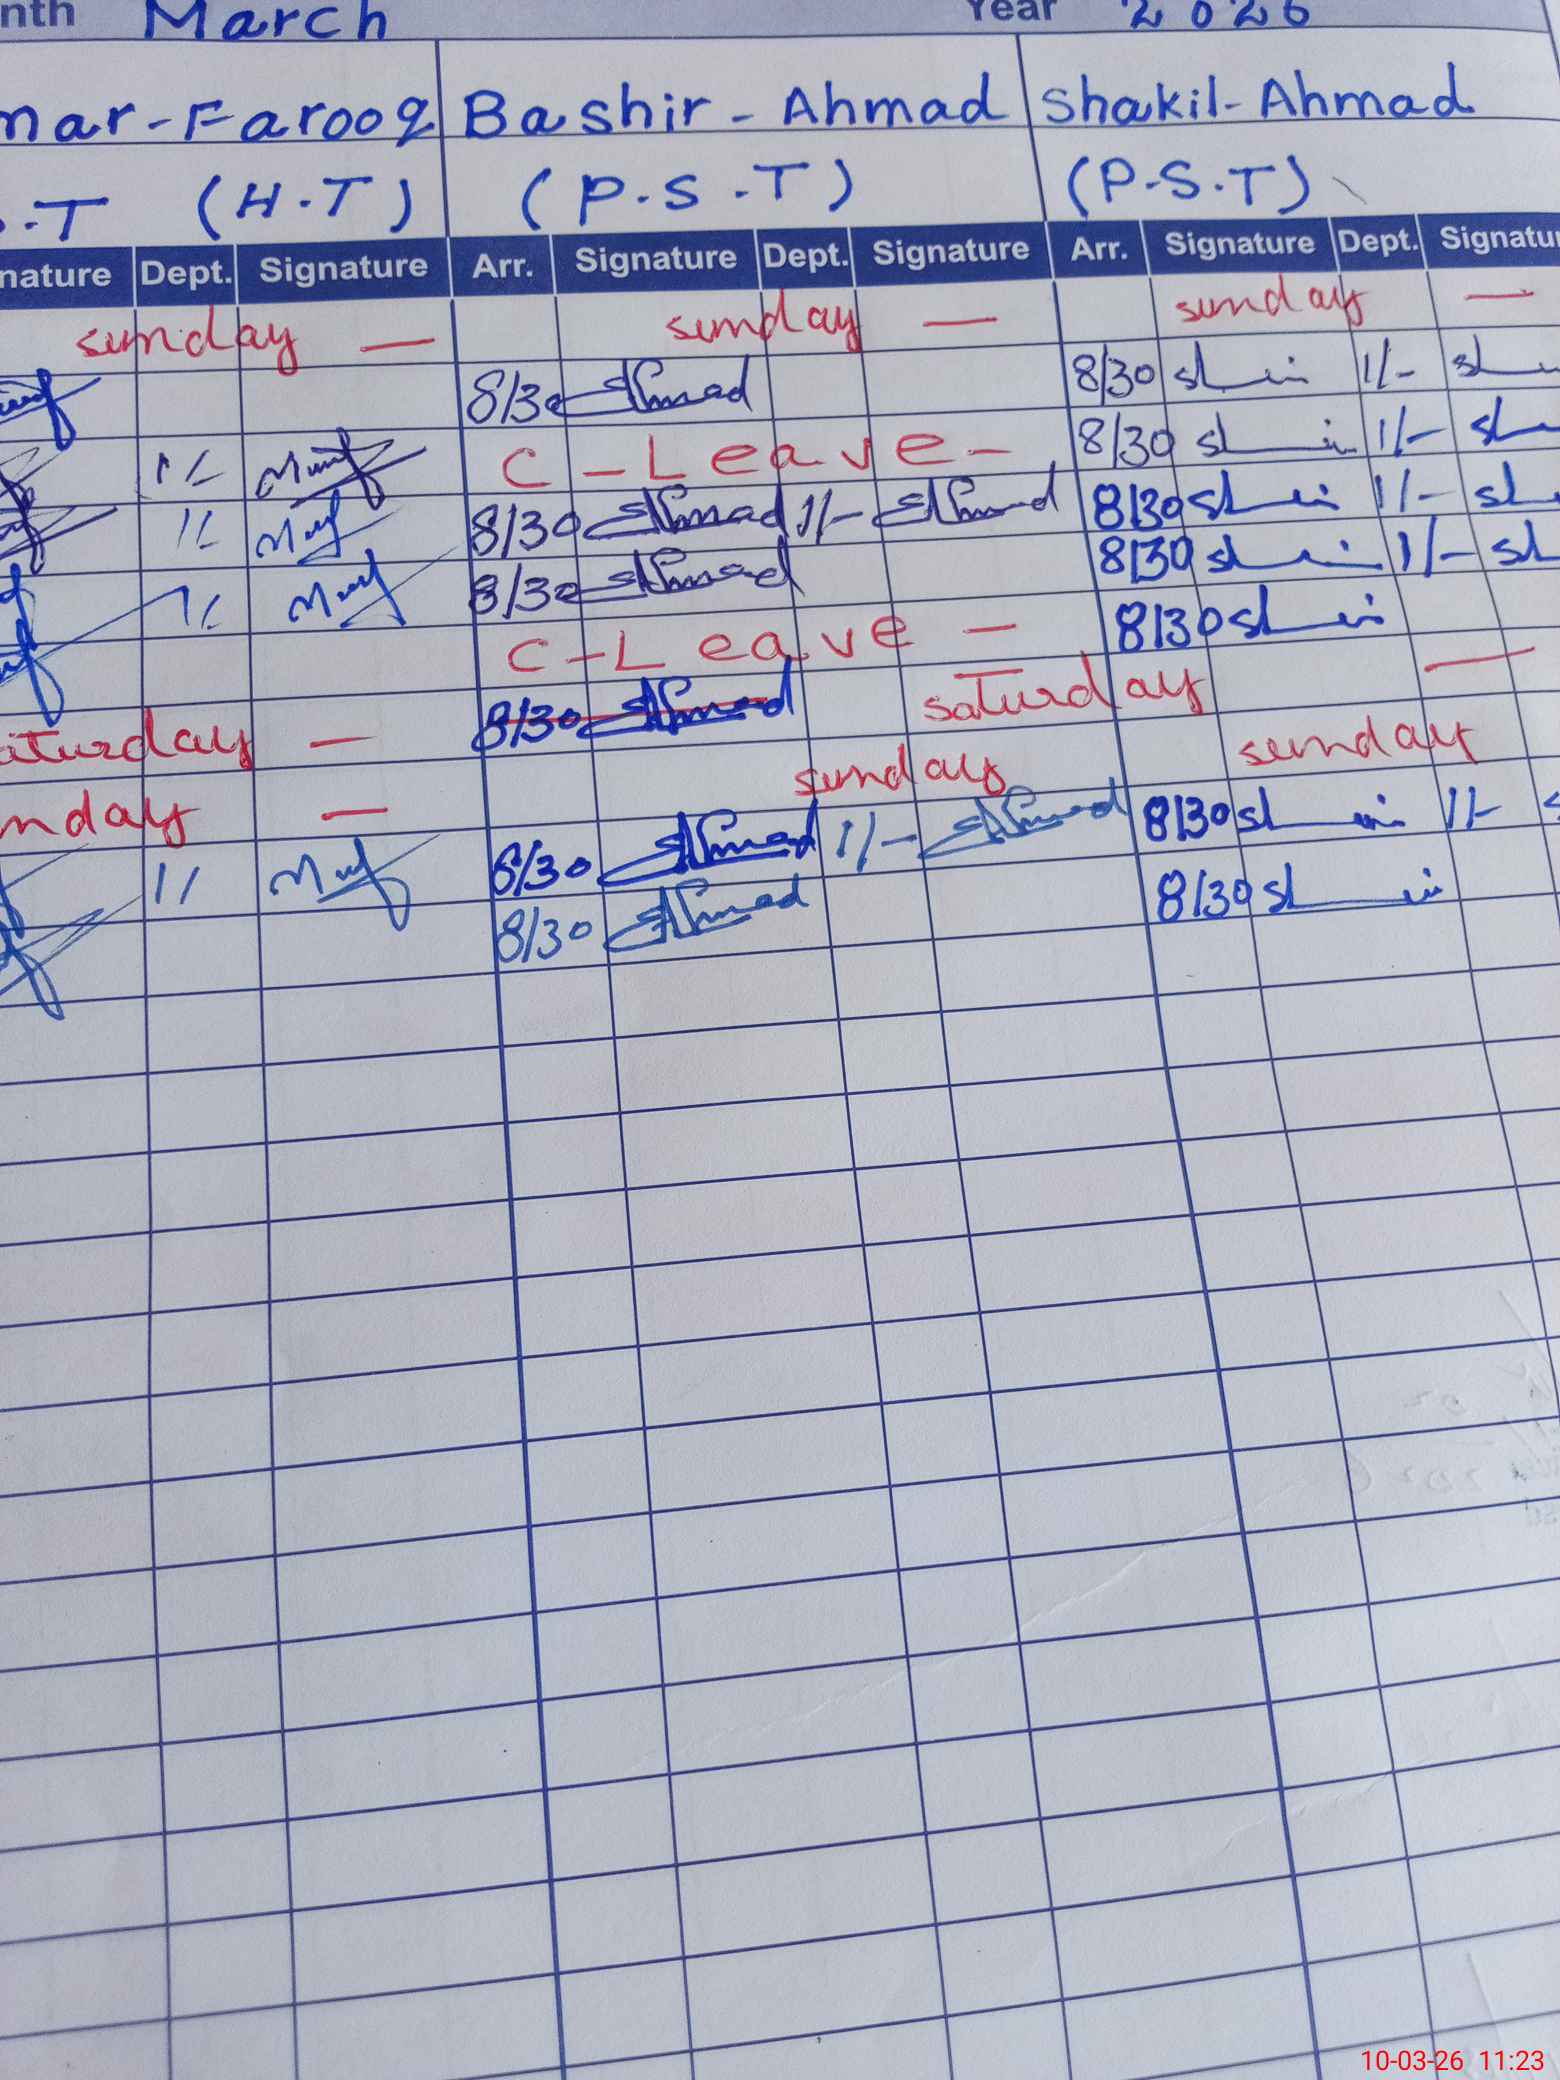 nth March Year 2026
mar-Farooq Bashir-Ahmad Shakil-Ahmad
.T (H.T) (P.S.T) (P.S.T)
nature Dept. Signature Arr. Signature Dept. Signature Arr. Signature Dept. Signatu
sunday — sunday — sunday —
8/30 Ahmad 8/30 1/-
1/- C-Leave- 8/30 1/-
1/- 8/30 Ahmad 1/- Ahmad 8/30 1/-
1/- 8/30 Ahmad 8/30 1/-
C-Leave — 8/30
aturday — 8/30 Ahmad saturday —
nday — sunday sunday
1/ 8/30 Ahmad 1/- Ahmad 8/30 1/-
8/30 Ahmad 8/30
10-03-26 11:23